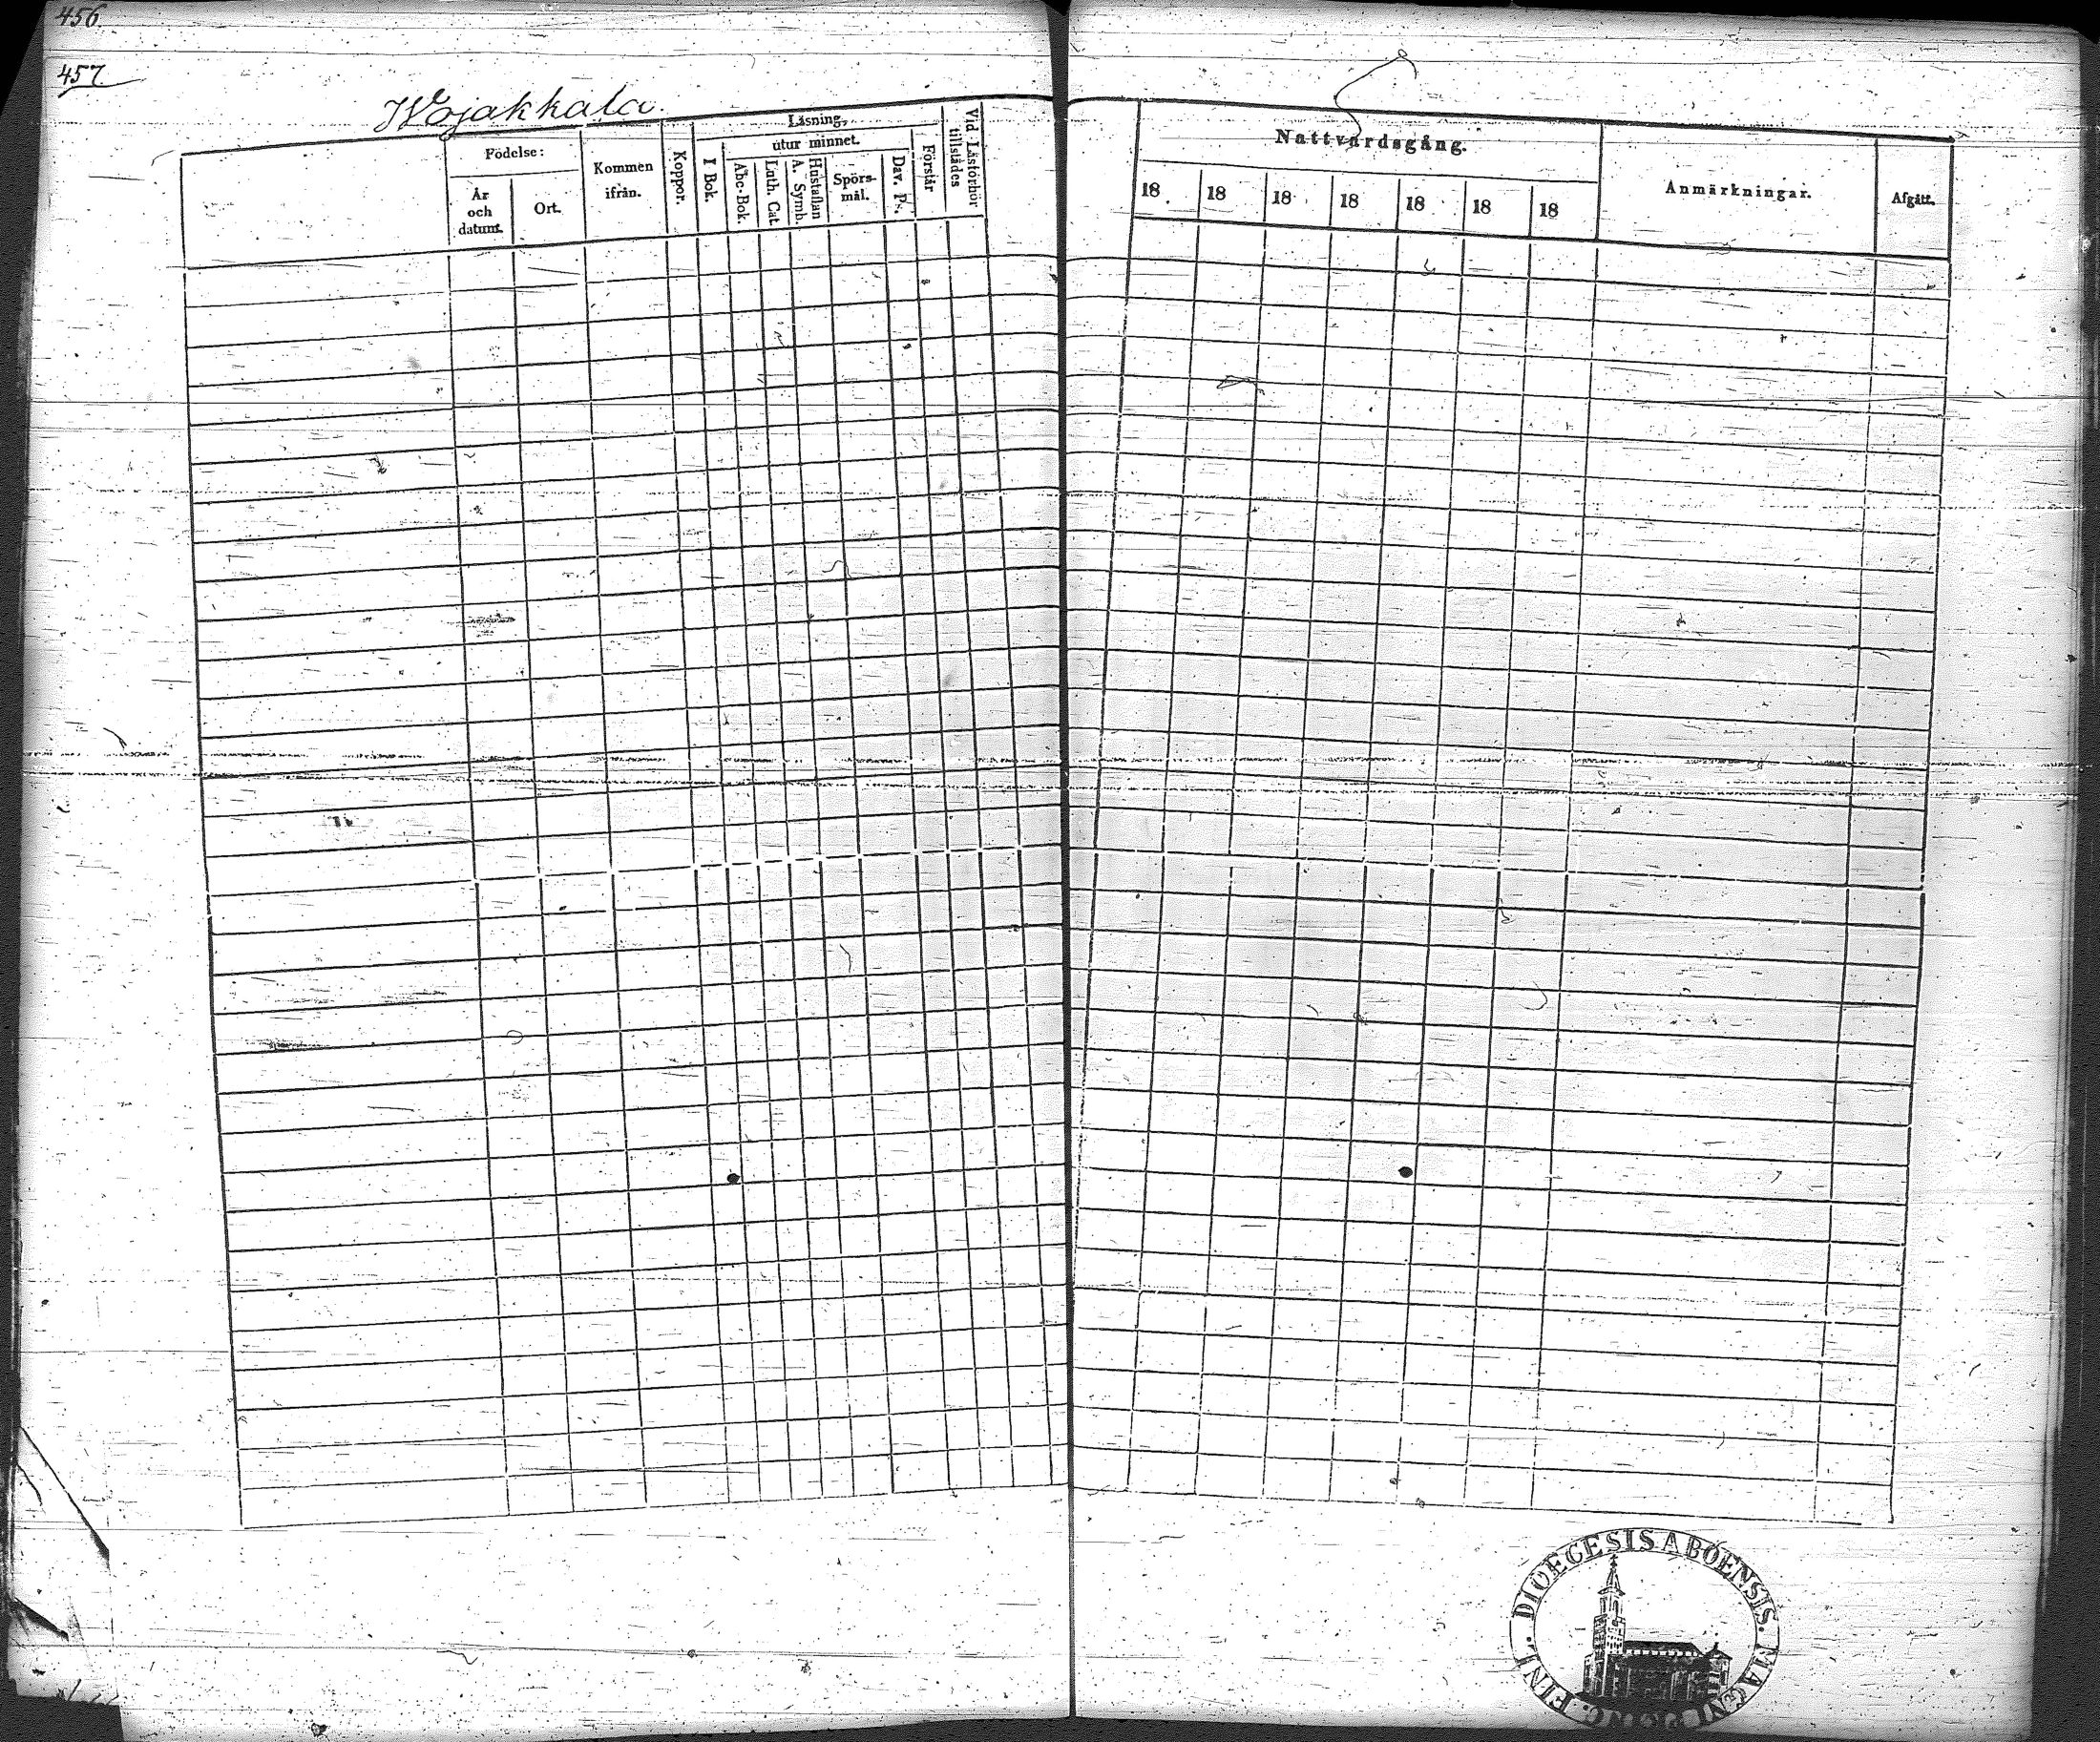 456
457
Wojakkala.
Födelse:
År och datum.
Ort.
Kommen ifrån.
Koppor.
Läsning,
I Bok.
utur minnet.
Abc-Bok.
Luth. Cat.
Hustaflan A. Symb.
Spörs-mål.
Dav. Ps.
Förstår
Vid Läsförhör tillstädes
Nattvardsgång.
18 18 18 18 18 18 18
Anmärkningar.
Afgått.
DIOECESIS ABOENSIS. MAGNI
FINL.